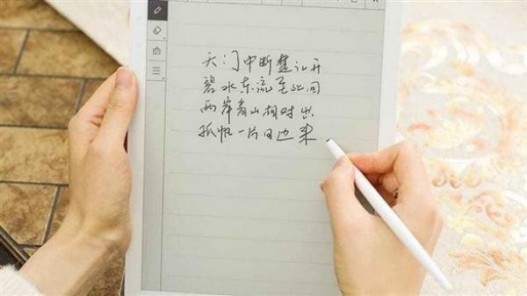 天门中断楚江开
碧水东流至此回
两岸青山相对出
孤帆一片日边来